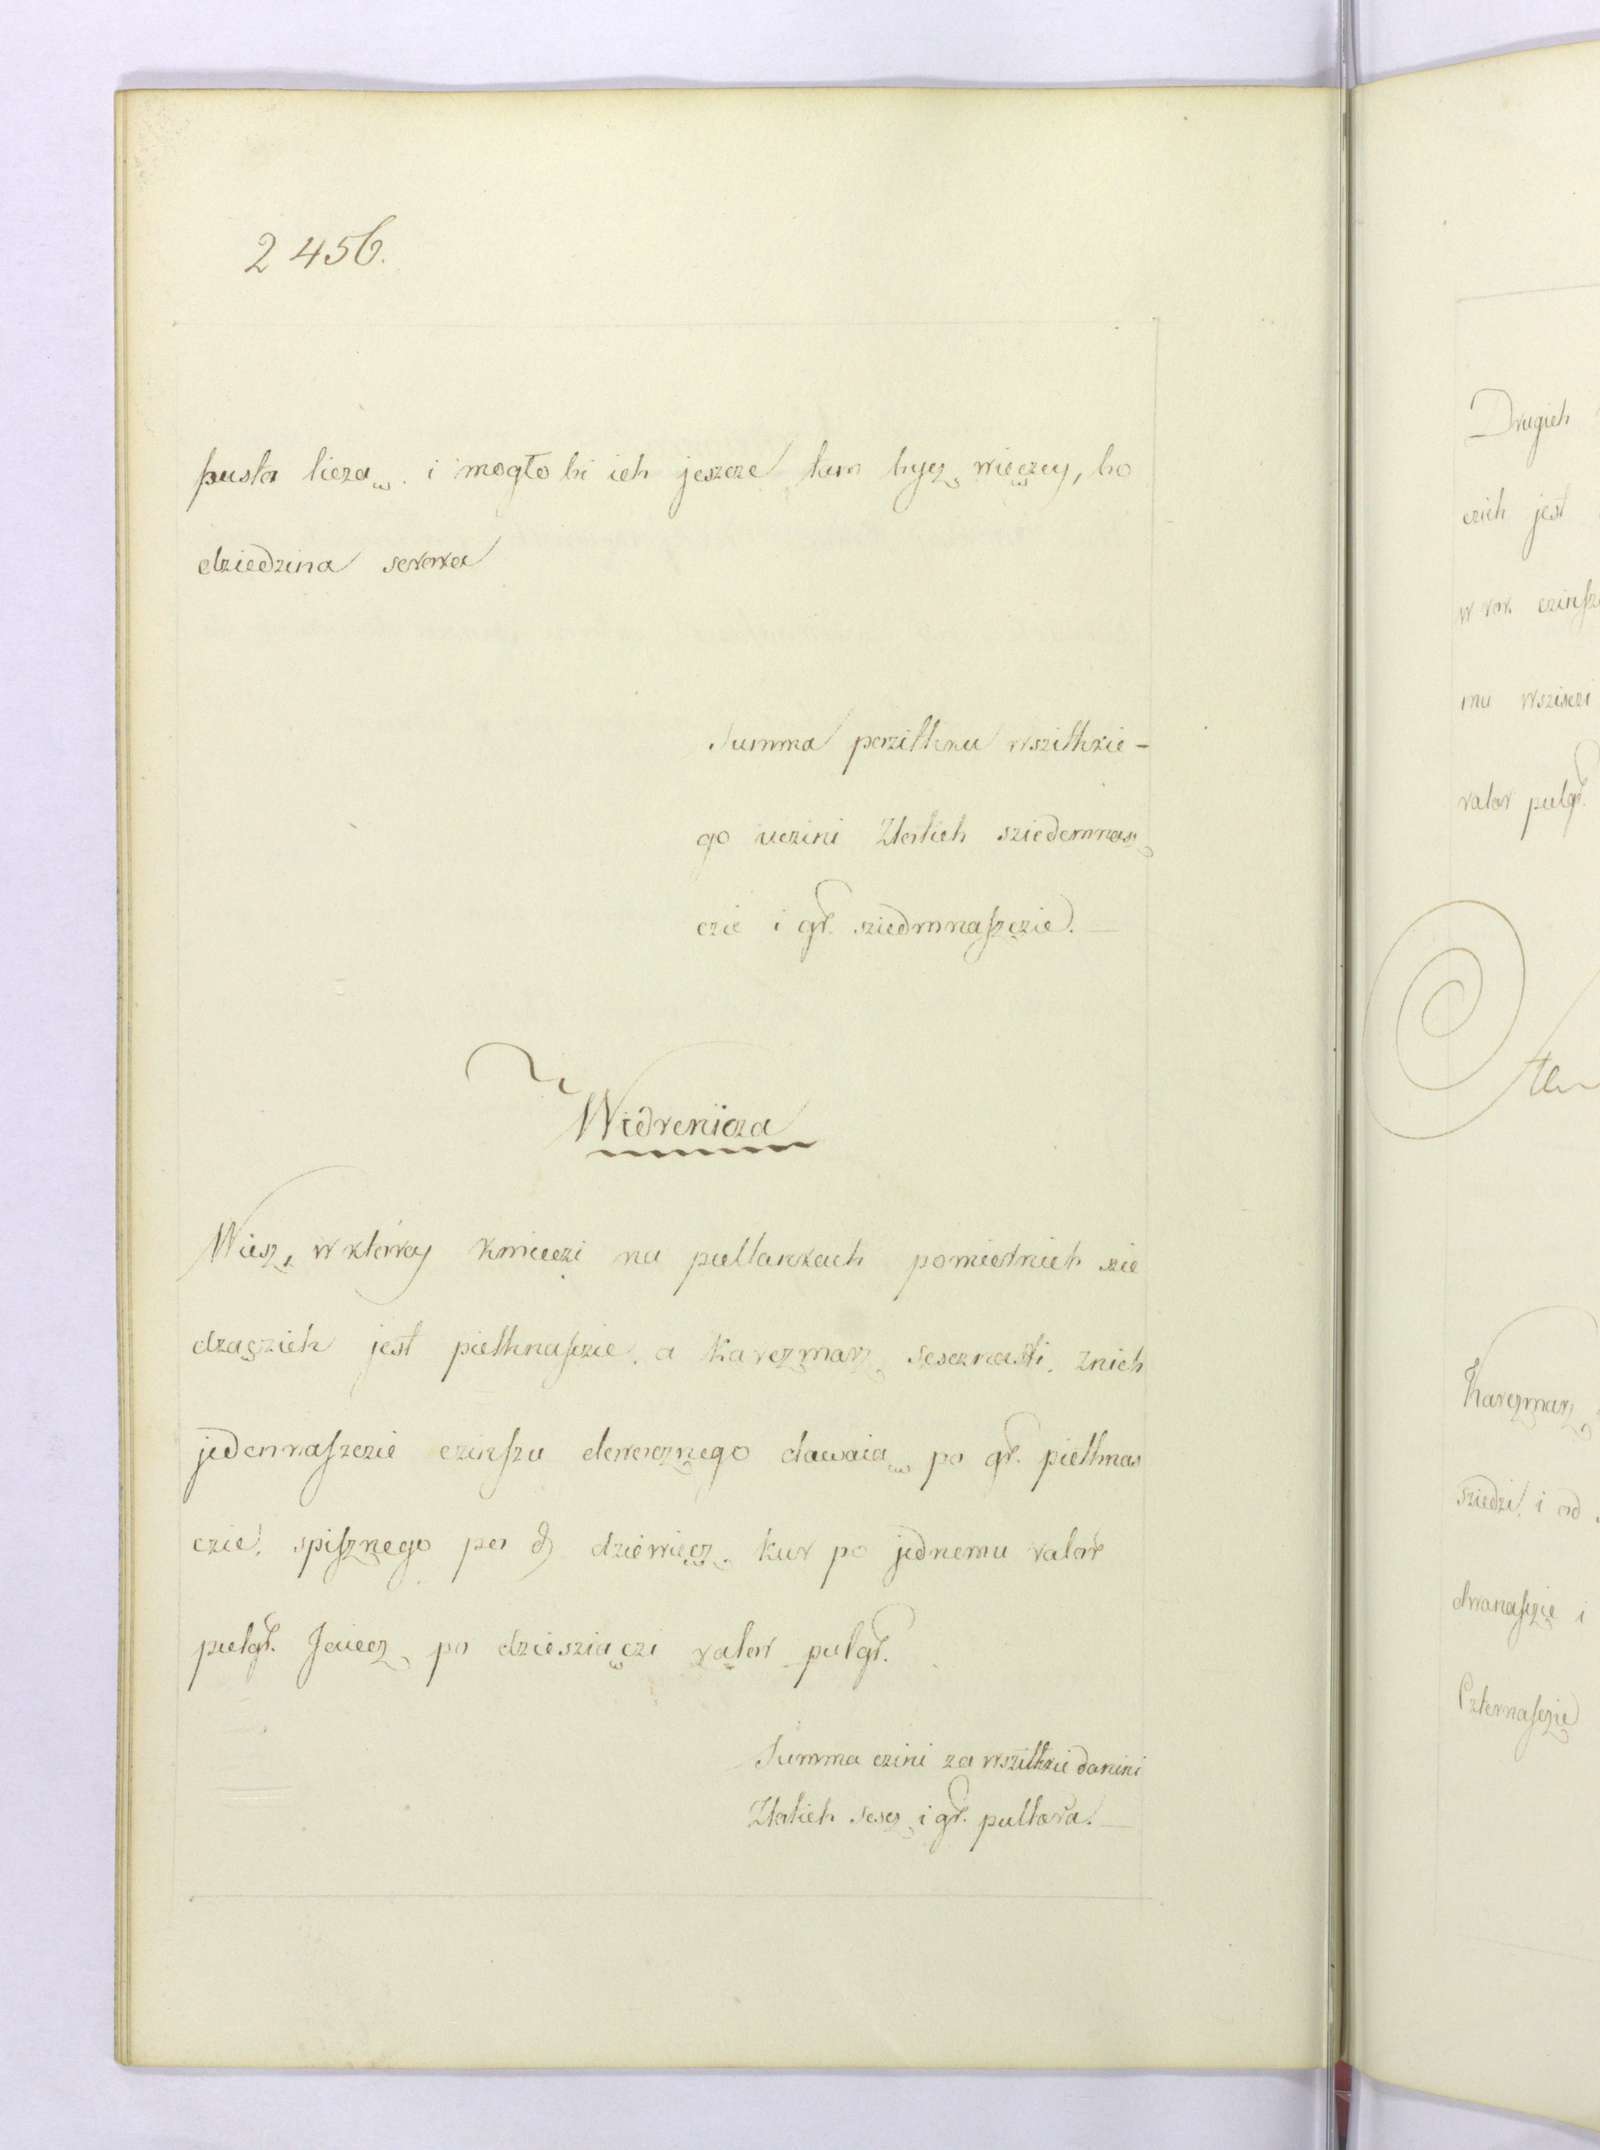 2456.
pusta licza. i mogło bi ich jeszcze tam bycz więczey, bo
dziedzina
Summa pozitknu wszitkie-
go uczini Złotich sziedemnas
czie i gr. sziedmnaszczie.
Widrenicza
Wiesz, w ktorey kmieczi na pułłankach pomiernich szie
dzaczich jest piethnasczie. a karczmarz sescznasti. z nich
jedennaszczie czinszu dorocznego dawaia po gr. piethnas
czie. spisznego po dziewięcz. kur po jednemu valor
pułgr. Jaiecz po dziesziączi valor pułgr.
Summa czini za wszitkie danini
Złotich sescz i gr. pułtora.
Drugich
czich jest
czinsz
mu wszisczi
valor pulgr.
Karczmarz
sziedzi. i od
dwanasczie i
Czternasczie